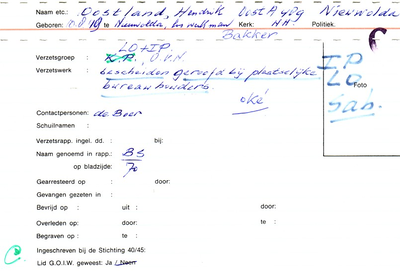 Naam etc.: Oostland, Hendrik Nieuwolda
Geboren: te Nieuwolda, Kerk: N.H. Politiek.
Bakker
LO + I.P.
Verzetsgroep : K.P., O.V.N
Verzetswerk : bescheiden geroofd bij plaatselijke
bureauhouders.
oké
I.P
LO
Foto
Contactpersonen: de Boer
Schuilnaam :
Verzetsrapp. ingel. dd. : bij:
Naam genoemd in rapp.: BS
op bladzijde: 70
Gearresteerd op : door:
Gevangen gezeten in :
Bevrijd op : uit : door:
Overleden op: door: te :
Begraven op : te :
Ingeschreven bij de Stichting 40/45:
Lid G.O.I.W. geweest: Ja / Neen